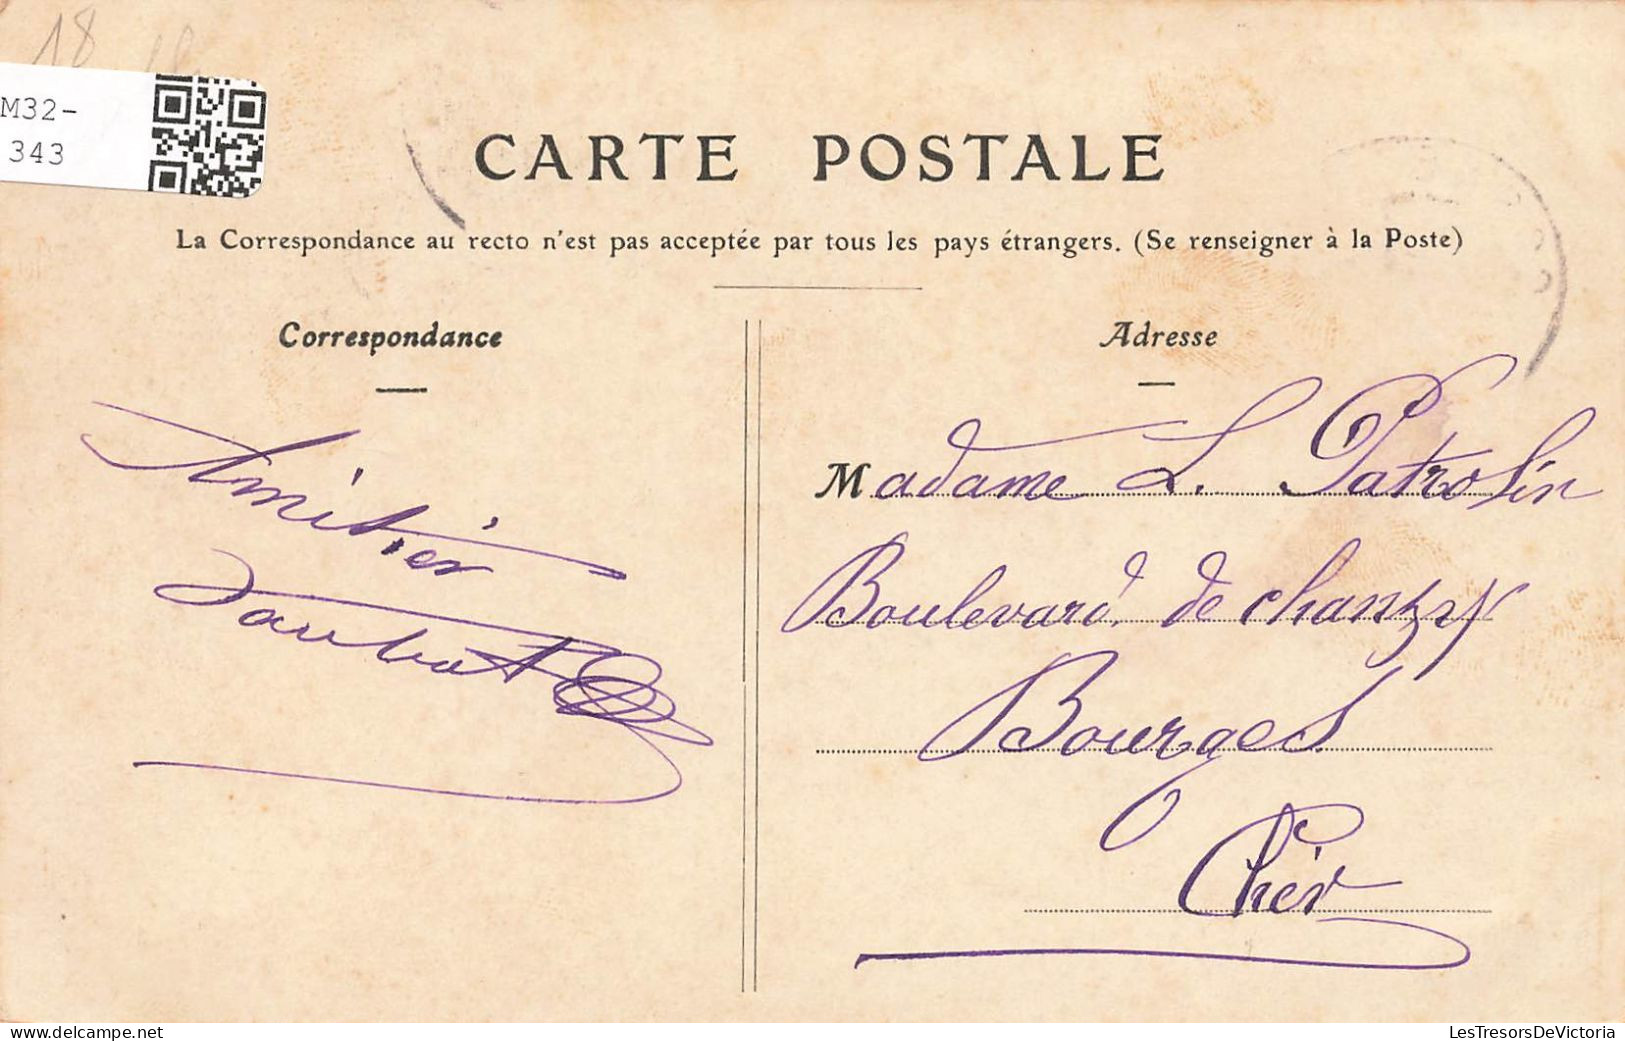 18
M32-
343
CARTE POSTALE
La Correspondance au recto n'est pas acceptée par tous les pays étrangers. (Se renseigner à la Poste)
Correspondance
Amitiés
Adresse
Madame L. Patrolin
Boulevard de Chanzy
Bourges
Cher
delcampe.net
LesTresorsDeVictoria